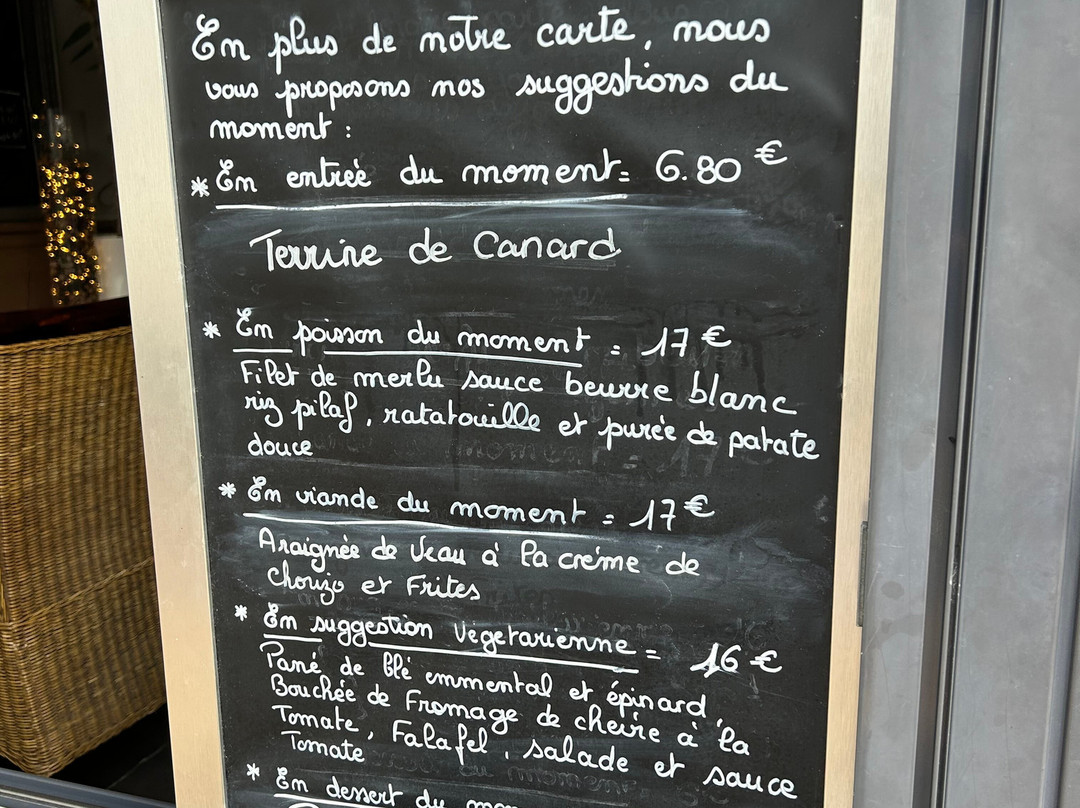 En plus de notre carte, nous
vous proposons nos suggestions du
moment :
* En entrée du moment = 6.80 €
Terrine de Canard
* En poisson du moment = 17 €
Filet de merlu sauce beurre blanc
riz pilaf, ratatouille et purée de patate
douce
* En viande du moment = 17 €
Araignée de Veau à la crème de
Chorizo et Frites
* En suggestion Végétarienne = 16 €
Pané de blé emmental et épinard,
Bouchée de Fromage de chèvre à la
Tomate, Falafel, salade et sauce
Tomate
* En dessert du